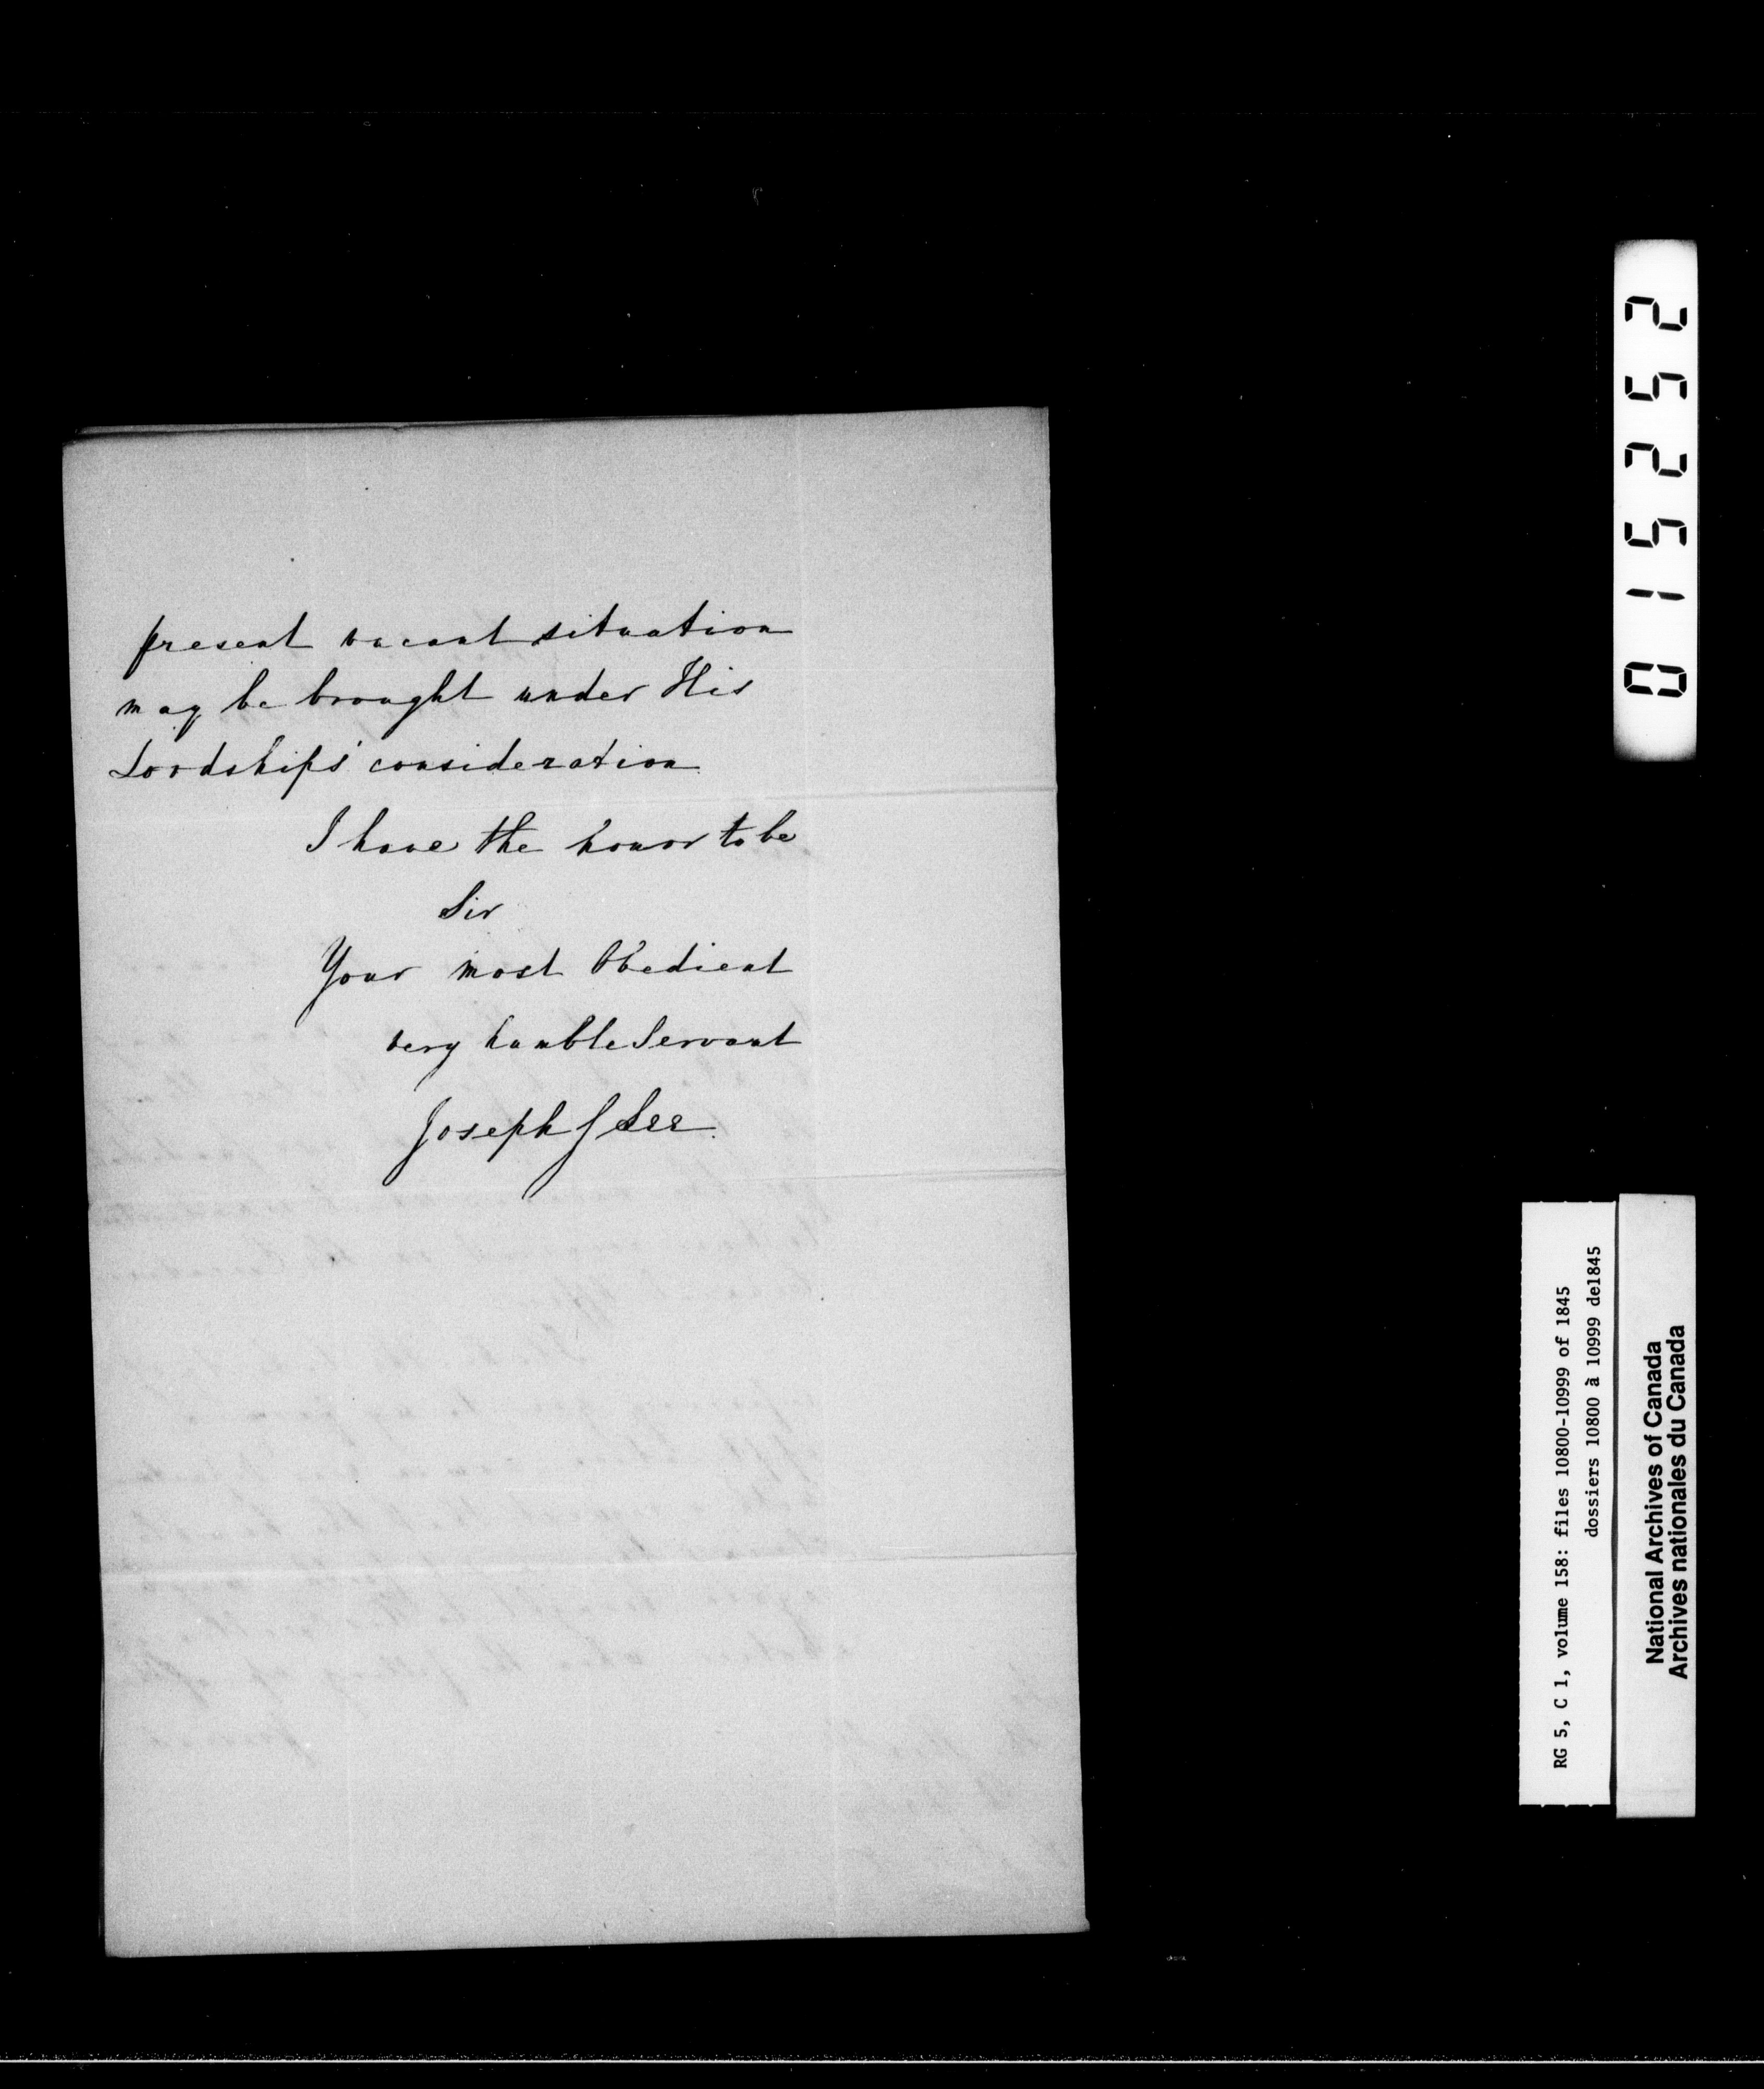 present vacant situation
may be brought under His
Lordships' consideration
I have the honor to be
Sir
Your most Obedient
very humble Servant
Joseph J Lee
015252
RG 5, C 1, volume 158: files 10800-10999 of 1845
dossiers 10800 à 10999 de1845
National Archives of Canada
Archives nationales du Canada